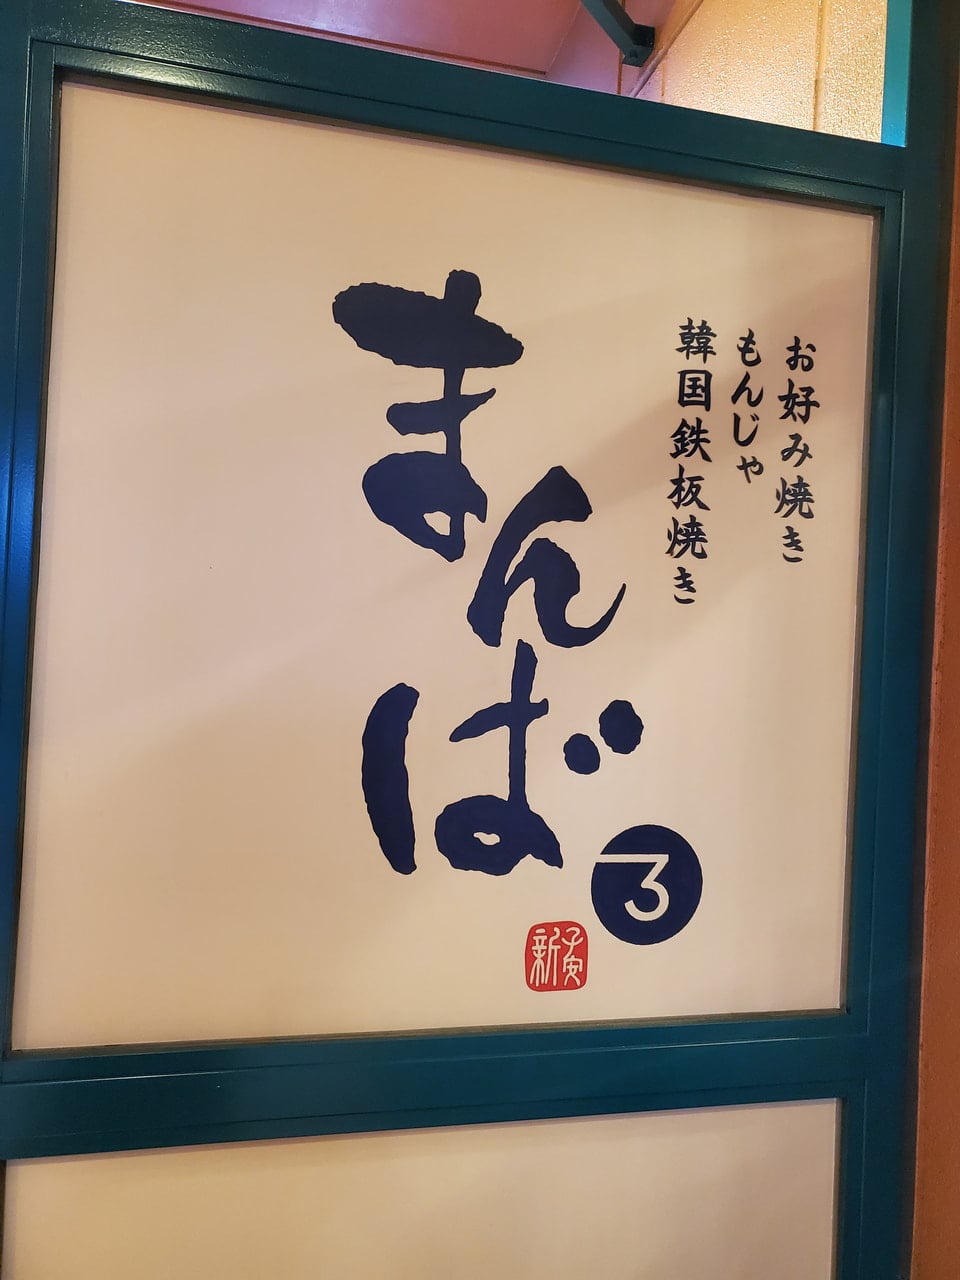 お好み焼き
もんじゃ
韓国鉄板焼き
まんば
3
新子安